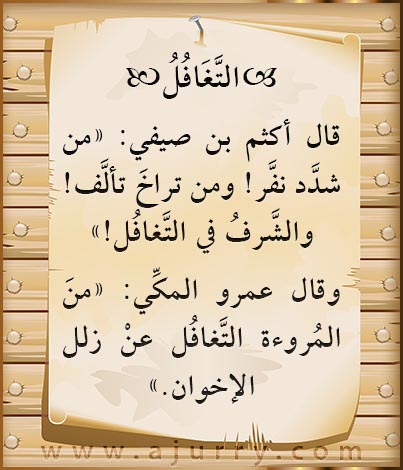 التَّغَافُلُ
قال أكثم بن صيفي: «من
شدَّد نفَّر! ومن تراخَ تألَّف!
والشَّرفُ في التَّغافُل!»
وقال عمرو المكِّي: «منَ
المُروءة التَّغافُل عنْ زلل
الإخوان.»
www.ajurry.com